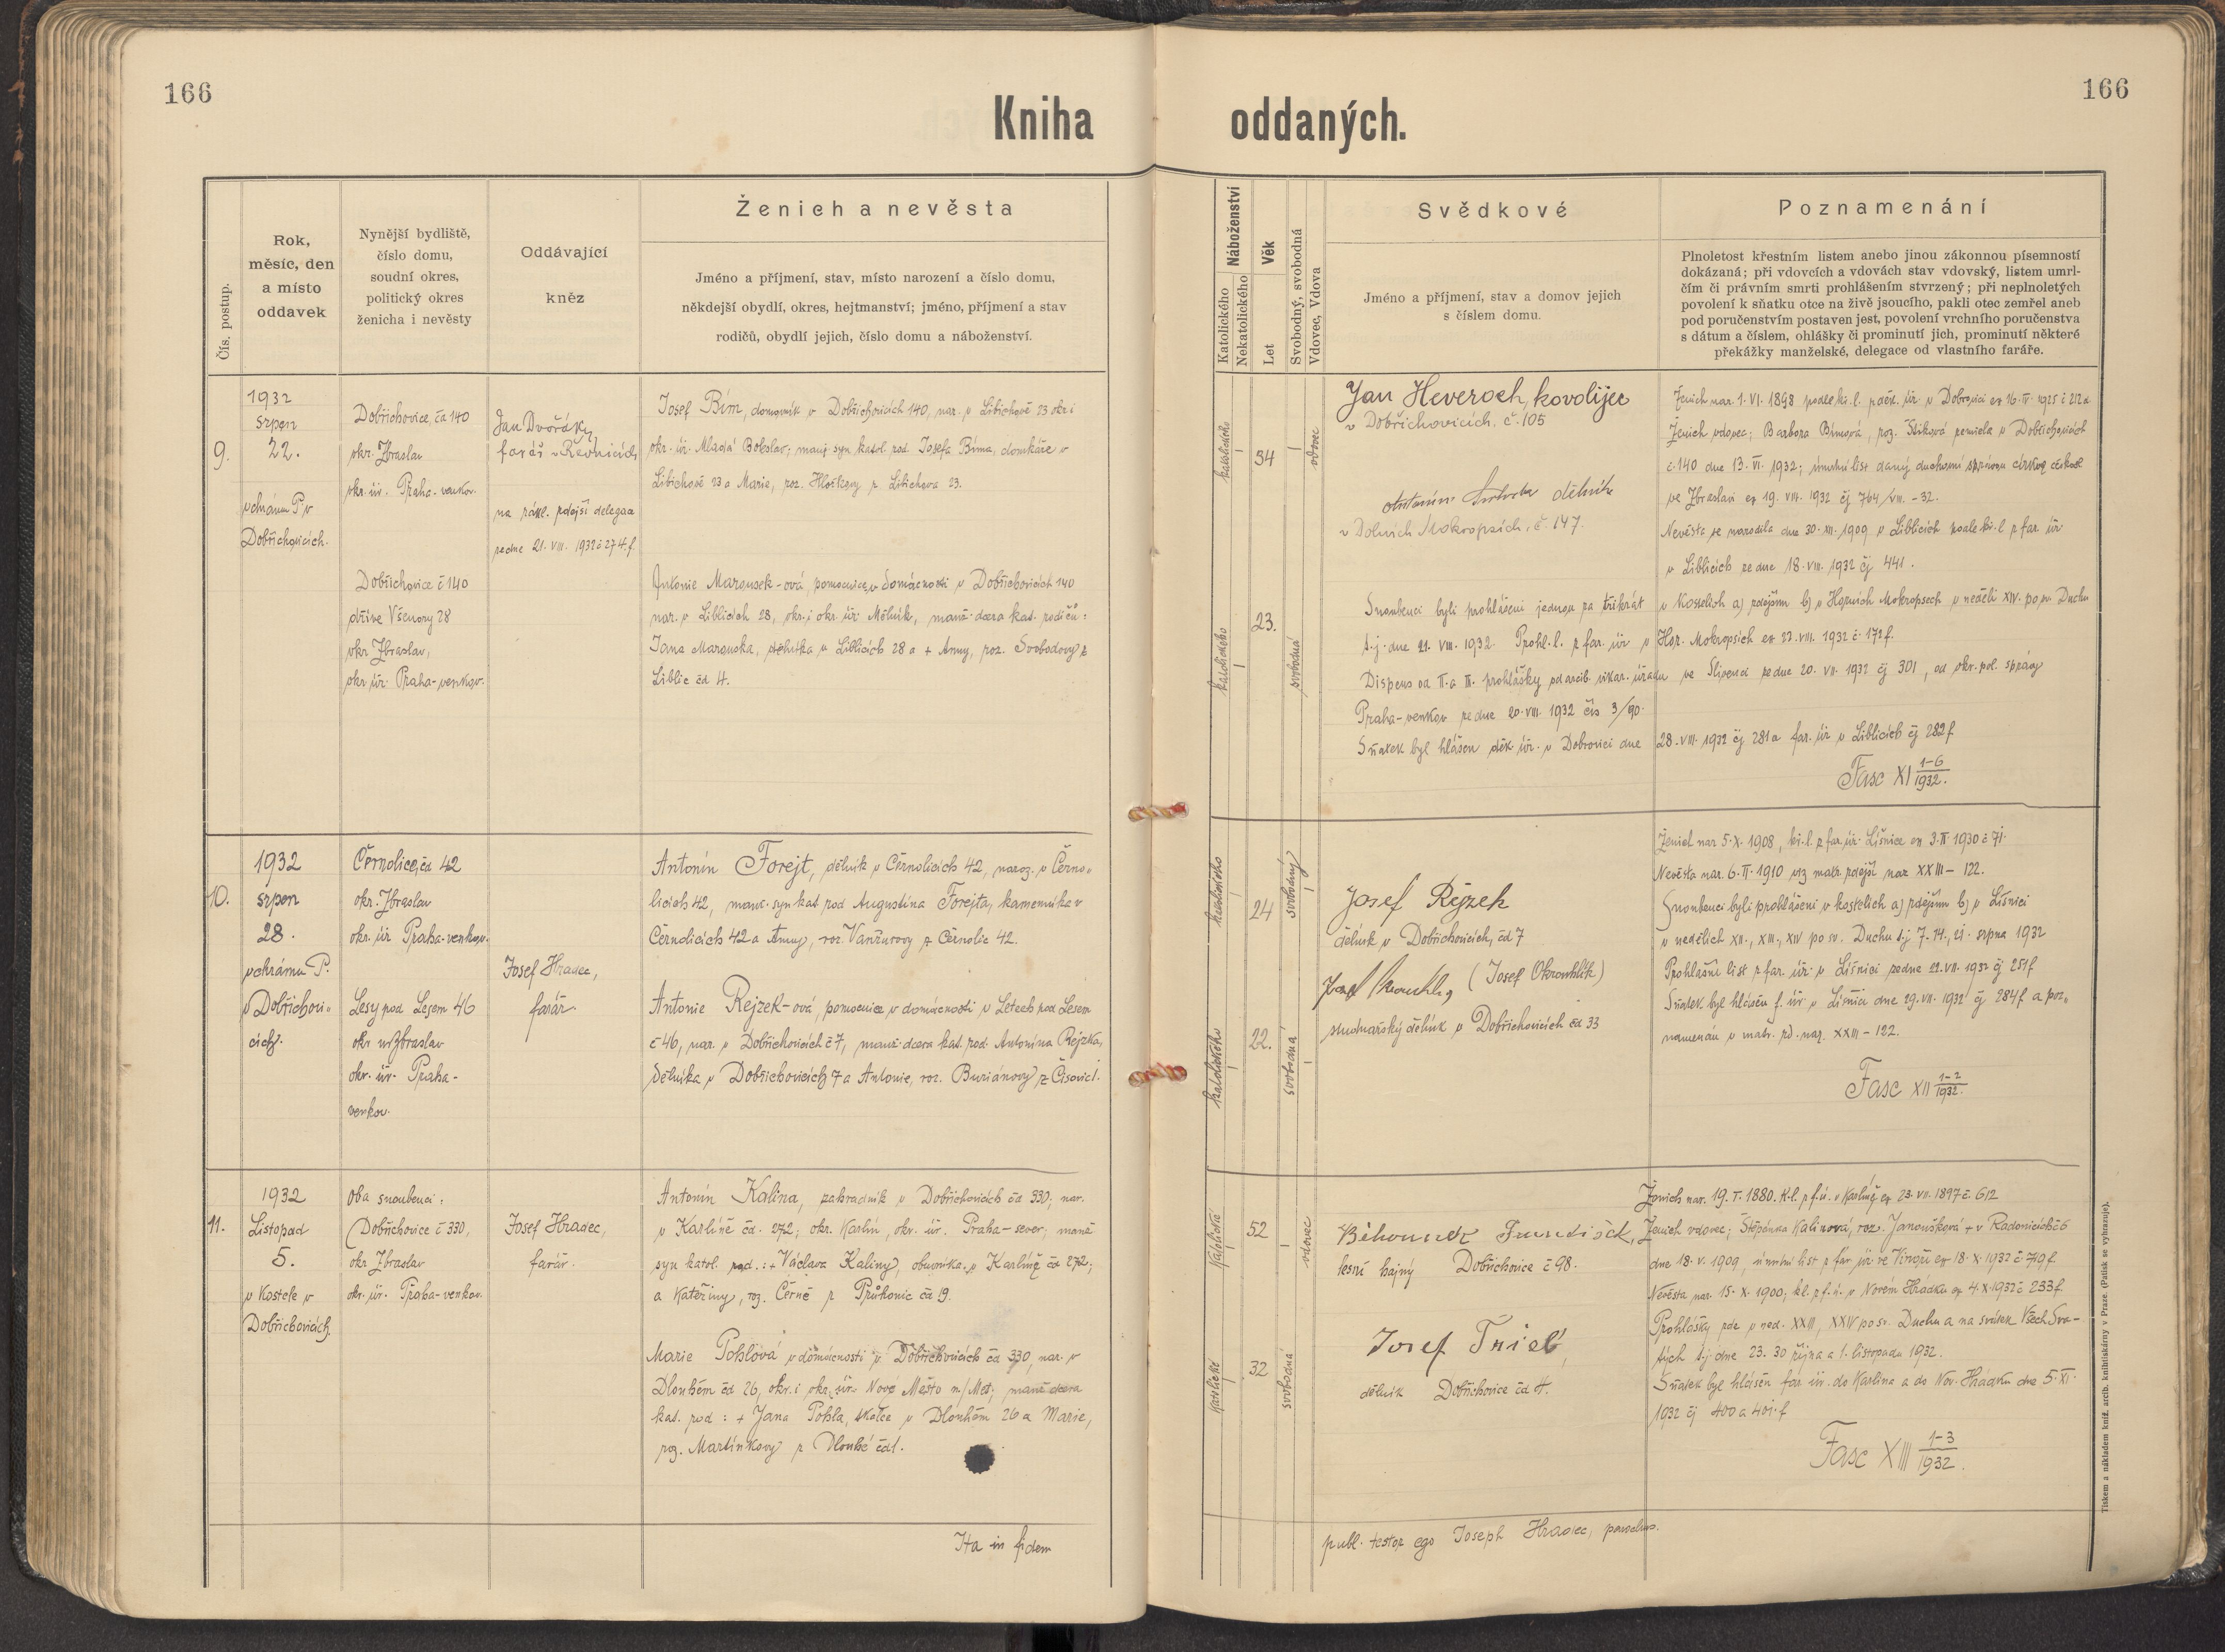 166
Kniha
Čís. postup.
Rok,
měsíc, den
a místo
oddavek
Nynější bydliště,
číslo domu,
soudní okres,
politický okres
ženicha i nevěsty
Oddávající
kněz
Ženich a nevěsta
Jméno a příjmení, stav, místo narození a číslo domu,
někdejší obydlí, okres, hejtmanství; jméno, příjmení a stav
rodičů, obydlí jejich, číslo domu a náboženství.
9.
1932
srpen
22.
v chrámu P. v
Dobřichovicích.
Dobřichovice, čd 140
okr. Zbraslav
okr. úř. Praha-venkov.
Dobřichovice č 140
dříve Všenory 28
okr. Zbraslav,
okr. úř. Praha-venkov.
Jan Dvořáky
farář v Řevnicích
na zákl. zdejší delegace
ze dne 21. VIII. 1932 č 274 f.
Josef Bím, domovník v Dobřichovicích 140, nar. v Libichově 23 okr i
okr. úř. Mladá Boleslav; manž. syn katol. rod. Josefa Bíma, domkáře v
Libichově 23 a Marie, roz. z Libichova 23.
Antonie Marousek-ová, pomocnice v domácnosti v Dobřichovicích 140
nar. v Liblicích 28, okr. i okr. úř. Mělník, manž. dcera kat. rodičů:
Jana Marouska, dělníka v Liblicích 28 a + Anny, roz. Svobodovy z
Liblic čd 4.
10.
1932
srpen
28.
v chrámu P.
v Dobřichovi-
cích.
Černolice, čd 42
okr. Zbraslav
okr. úř. Praha-venkov.
Lety pod Lesem 46
okr. Zbraslav
okr. úř. Praha-
venkov.
Josef Hradec,
farář.
Antonín Forejt, dělník v Černolicích 42, naroz. v Černo-
licích 42, manž. syn kat. rod. Augustina Forejta, kameníka v
Černolicích 42 a Anny, roz. Vančurovy z Černolic 42.
Antonie Rejzek-ová, pomocnice v domácnosti v Letech pod Lesem
č 46, nar. v Dobřichovicích č 7, manž. dcera kat. rod. Antonína Rejzka,
dělníka v Dobřichovicích 7 a Antonie, roz. Buriánovy z Čisovic 1.
11.
1932
Listopad
5.
v kostele v
Dobřichovicích.
Oba snoubenci:
Dobřichovice č 330,
okr. Zbraslav
okr. úř. Praha-venkov.
Josef Hradec,
farář.
Antonín Kalina, zahradník v Dobřichovicích čd 330, nar.
v Karlíně čd. 272; okr. Karlín, okr. úř. Praha-sever; manž
syn katol. rod.: + Václava Kaliny, obuvníka v Karlíně čd 272;
a Kateřiny, roz. Černé z Průhonic čd 19.
Marie Pohlová v domácnosti v Dobřichovicích čd 330, nar. v
Dlouhém čd 26, okr. i okr. úř. Nové Město n/Met., manž dcera
kat. rod: + Jana Pohla, tkalce v Dlouhém 26 a Marie,
roz. Martínkovy z Dlouhé čd 1.
Ita in fidem
166
oddaných.
Náboženství
Katolického
Nekatolického
Věk
Let
Svobodný, svobodná
Vdovec, Vdova
Svědkové
Jméno a příjmení, stav a domov jejich
s číslem domu.
Poznamenání
Plnoletost křestním listem anebo jinou zákonnou písemností
dokázaná; při vdovcích a vdovách stav vdovský, listem umrl-
čím či právním smrti prohlášením stvrzený; při neplnoletých
povolení k sňatku otce na živě jsoucího, pakli otec zemřel aneb
pod poručenstvím postaven jest, povolení vrchního poručenstva
s dátum a číslem, ohlášky či prominutí jich, prominutí některé
překážky manželské, delegace od vlastního faráře.
katolického
34
vdovec
Jan Heveroch, kovolijec
v Dobřichovicích. č. 105
Antonín dělník
v Dolních Mokropsích. č. 147.
Ženich nar. 1. VI. 1898 podle kř. l. děk. úř. v Dobrovici ex 16. II. 1925 č 212
Ženich vdovec; Barbora Bímová, roz. zemřela v Dobřichovicích
č. 140 dne 13. VI. 1932; úmrtní list daný duchovní správou církve českosl
ve Zbraslavi ex 19. VII. 1932 čj 764/VIII.-32.
Nevěsta se narodila dne 30. XII. 1909 v Liblicích podle kř. l z far. úř
v Liblicích ze dne 18. VIII. 1932 čj 441.
katolického
23.
svobodná
Snoubenci byli prohlášeni jednou za třikrát v kostelích a) zdejším b) v Horních Mokropsech v neděli XIV. po sv. Duchu
t. j. dne 21. VIII. 1932. Prohl. l. z far. úř v Hor. Mokropsích ex 23. VIII. 1932 č. 172 f.
Dispens od II. a III. prohlášky od arcib. vikar. úřadu ve Slivenci ze dne 20. VII. 1932 čj 301, od okr. pol. správy
Praha-venkov ze dne 20. VIII. 1932 čís 3/90.
Sňatek byl hlášen děk. úř. v Dobrovici dne 28. VIII. 1932 čj 281 a far. úř v Liblicích čj 282 f
Fasc XI 1-6/1932.
katolického
24
svobodný
Josef Rejzek
dělník v Dobřichovicích, čd 7
(Josef Okrouhlík)
studnařský dělník v Dobřichovicích čd 33
katolického
22.
svobodná
Ženich nar 5. X. 1908, kř. l. z far. úř. Líšnice ex 3. II. 1930 č 71.
Nevěsta nar. 6. II. 1910 viz matr. zdejší nar XXIII - 122.
Snoubenci byli prohlášeni v kostelích a) zdejším b) v Líšnici
v nedělích XII., XIII., XIV po sv. Duchu t. j 7. 14., 21. srpna 1932
Prohlašní list z far. úř. v Líšnici ze dne 22. VII. 1932 čj 251 f
Sňatek byl hlášen f. úř. v Líšnici dne 29. VII. 1932 čj 284 f a poz-
namenán v matr. zd. nar. XXIII - 122.
Fasc XII 1-2/1932.
katolické
52
vdovec
Běhounek František,
lesní hajný Dobřichovice č 98.
Josef
dělník Dobřichovice čd 4.
katolické
32
svobodná
Ženich nar. 19. I. 1880. K. l. z f. ú. v Karlíně ex 23. VII. 1897 č. 612
Ženich vdovec; Štěpánka Kalinová, roz. Janoušková + v Radonicích č 6
dne 18. V. 1909, úmrtní list z far. úř. ve Vinoři ex 18. X. 1932 č. 719 f
Nevěsta nar. 15. X. 1900; kl. z f. ú. v Novém Hrádku ex 4. X. 1932 č 233 f.
Prohlášky zde v ned. XXIII, XXIV po sv. Duchu a na svátek Všech Sva-
tých t. j. dne 23. 30 října a 1. listopadu 1932.
Sňatek byl hlášen far. úř. do Karlína a do Nov. Hrádku dne 5. XI.
1932 čj 400 a 401. f
Fasc XIII 1-3/1932.
publ. testor ego Joseph Hradec, parochus.
Tiskem a nákladem kníž. arcib. knihtiskárny v Praze. (Patisk se vyhrazuje).